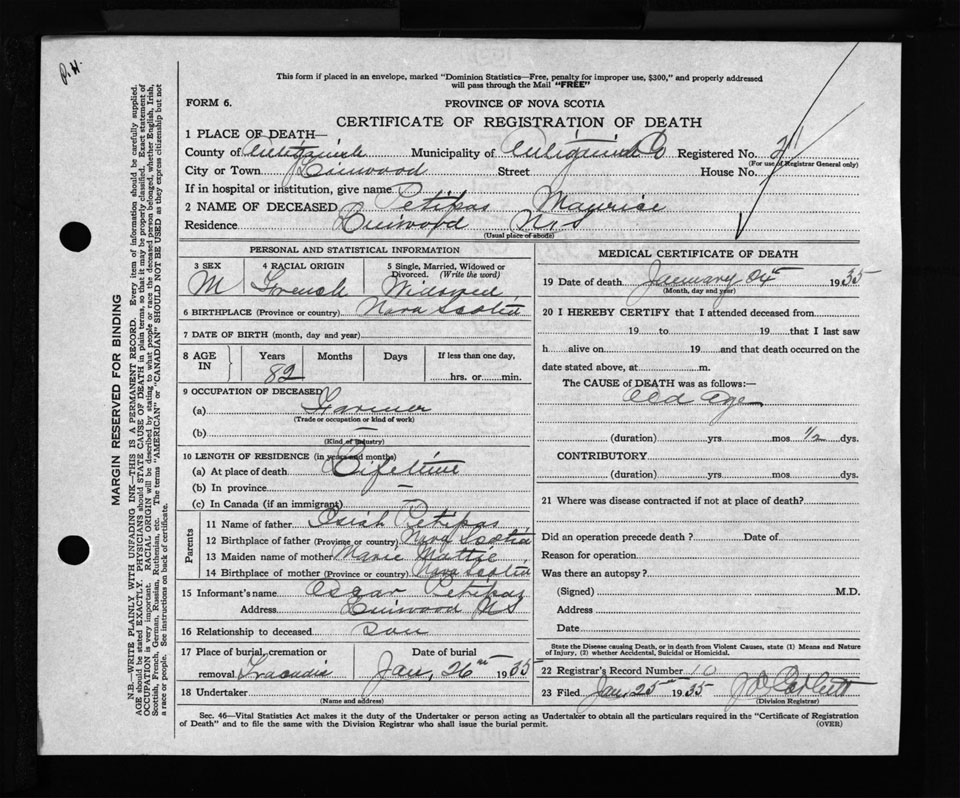 P.H.
This form if placed in an envelope, marked "Dominion Statistics—Free, penalty for improper use, $300," and properly addressed
will pass through the Mail "FREE"
FORM 6.
PROVINCE OF NOVA SCOTIA
CERTIFICATE OF REGISTRATION OF DEATH
1 PLACE OF DEATH—
County of Antigonish Municipality of Antigonish Co Registered No.
(For use of Registrar General only)
City or Town Linwood Street House No.
If in hospital or institution, give name
2 NAME OF DECEASED Petipas Maurice
Residence Linwood N.S
(Usual place of abode)
PERSONAL AND STATISTICAL INFORMATION
3 SEX M
4 RACIAL ORIGIN French
5 Single, Married, Widowed or Divorced. (Write the word) Widowed
6 BIRTHPLACE (Province or country) Nova Scotia
7 DATE OF BIRTH (month, day and year)
8 AGE IN Years Months Days If less than one day,
82 hrs. or min.
9 OCCUPATION OF DECEASED
(a) Farmer
(Trade or occupation or kind of work)
(b) —
(Kind of Industry)
10 LENGTH OF RESIDENCE (in years and months)
(a) At place of death Lifetime
(b) In province —
(c) In Canada (if an immigrant) —
Parents
11 Name of father Petipas
12 Birthplace of father (Province or country) Nova Scotia
13 Maiden name of mother Marie Mattie
14 Birthplace of mother (Province or country) Nova Scotia
15 Informant's name Oscar Petipas
Address Linwood NS
16 Relationship to deceased son
17 Place of burial, cremation or removal Tracadie
Date of burial Jan, 26th 1935
18 Undertaker
(Name and address)
MEDICAL CERTIFICATE OF DEATH
19 Date of death January 1935
(Month, day and year)
20 I HEREBY CERTIFY that I attended deceased from
19 to 19 that I last saw
h alive on 19 and that death occurred on the
date stated above, at m.
The CAUSE of DEATH was as follows:—
Old Age
(duration) yrs mos 1/2 dys.
CONTRIBUTORY
(duration) yrs mos dys.
21 Where was disease contracted if not at place of death?
Did an operation precede death ? Date of
Reason for operation
Was there an autopsy?
(Signed) M.D.
Address
Date
State the Disease causing Death, or in death from Violent Causes, state (1) Means and Nature
of Injury, (2) whether Accidental, Suicidal or Homicidal.
22 Registrar's Record Number 10
23 Filed Jan, 25th 1935 Corbett
(Division Registrar)
Sec. 46—Vital Statistics Act makes it the duty of the Undertaker or person acting as Undertaker to obtain all the particulars required in the "Certificate of Registration
of Death" and to file the same with the Division Registrar who shall issue the burial permit. (OVER)
MARGIN RESERVED FOR BINDING
N.B.—WRITE PLAINLY WITH UNFADING INK—THIS IS A PERMANENT RECORD. Every item of information should be carefully supplied.
AGE should be stated EXACTLY. PHYSICIANS should STATE CAUSE OF DEATH in plain terms, so that it may be properly classified. Exact statement of
OCCUPATION is very important. RACIAL ORIGIN will be described by stating to what people or race the deceased person belonged, whether English, Irish,
Scottish, French, German, Russian, Ruthenian, etc. The terms "AMERICAN" or "CANADIAN" SHOULD NOT BE USED as they express citizenship but not
a race or people. See instructions on back of certificate.